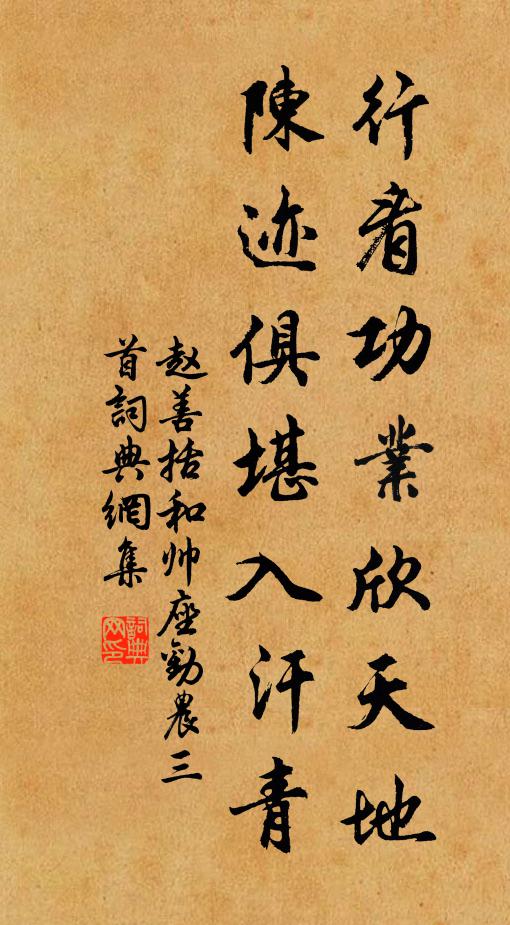 行看功業欣天地
陳迹俱堪入汗青
赵善括和帅座勸農三
首詞典網集
詞典网印